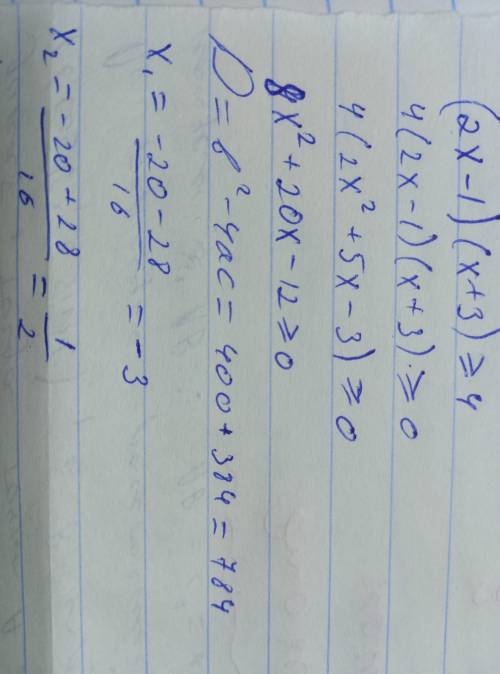 (2x-1)(x+3)≥4
4(2x-1)(x+3)≥0
4(2x²+5x-3)≥0
8x²+20x-12≥0
D=b²-4ac=400+384=784
x₁=(-20-28)/16=-3
x₂=(-20+28)/16=1/2